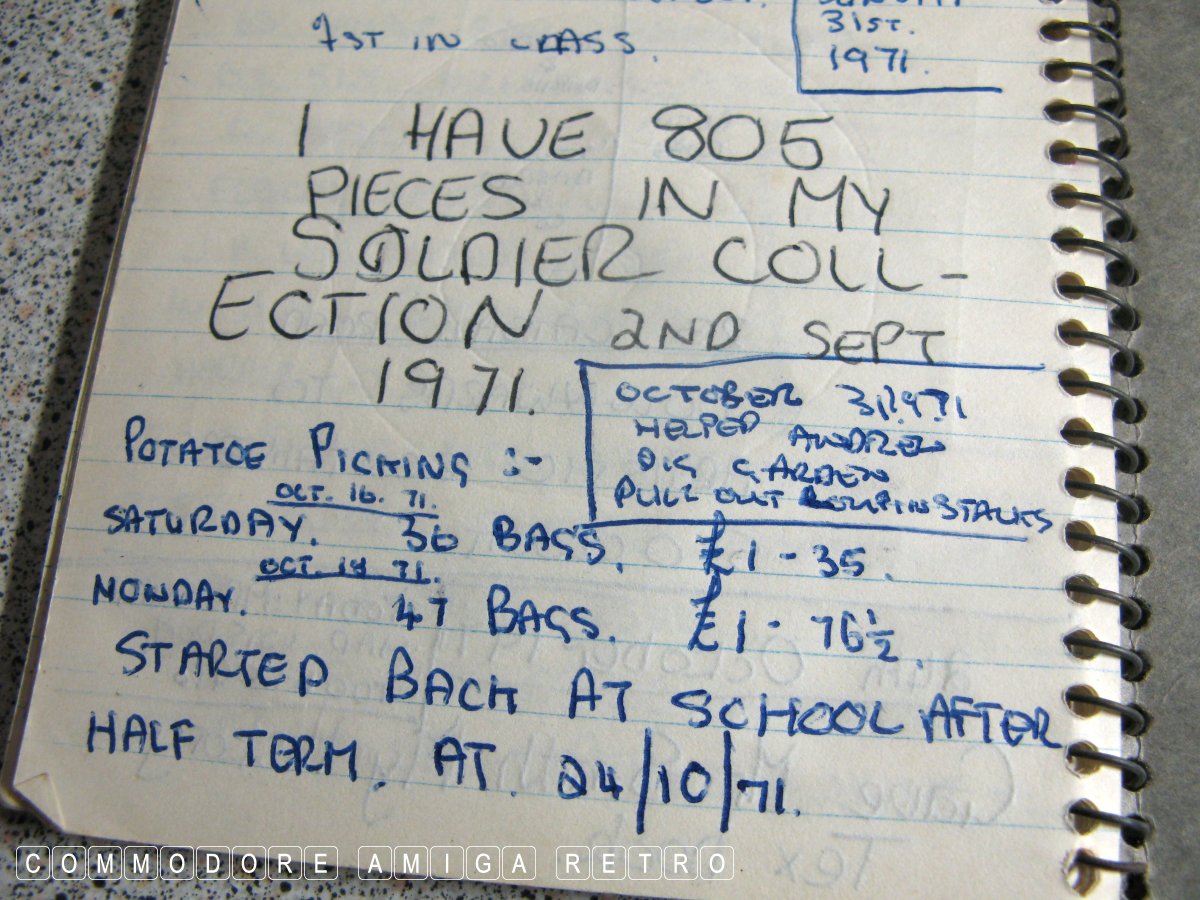 1ST IN CLASS.
31ST.
1971.
I HAVE 805
PIECES IN MY
SOLDIER COLL-
ECTION 2ND SEPT
1971.
OCTOBER 31.1971
HELPED ANDREW
DIG GARDEN
PULL OUT LOUPINSTALKS
POTATOE PICKING :-
OCT. 16. 71.
SATURDAY. 36 BAGS. £1-35.
OCT. 18 71.
MONDAY. 47 BAGS. £1-76½.
STARTED BACK AT SCHOOL AFTER
HALF TERM. AT. 24/10/71.
COMMODORE AMIGA RETRO